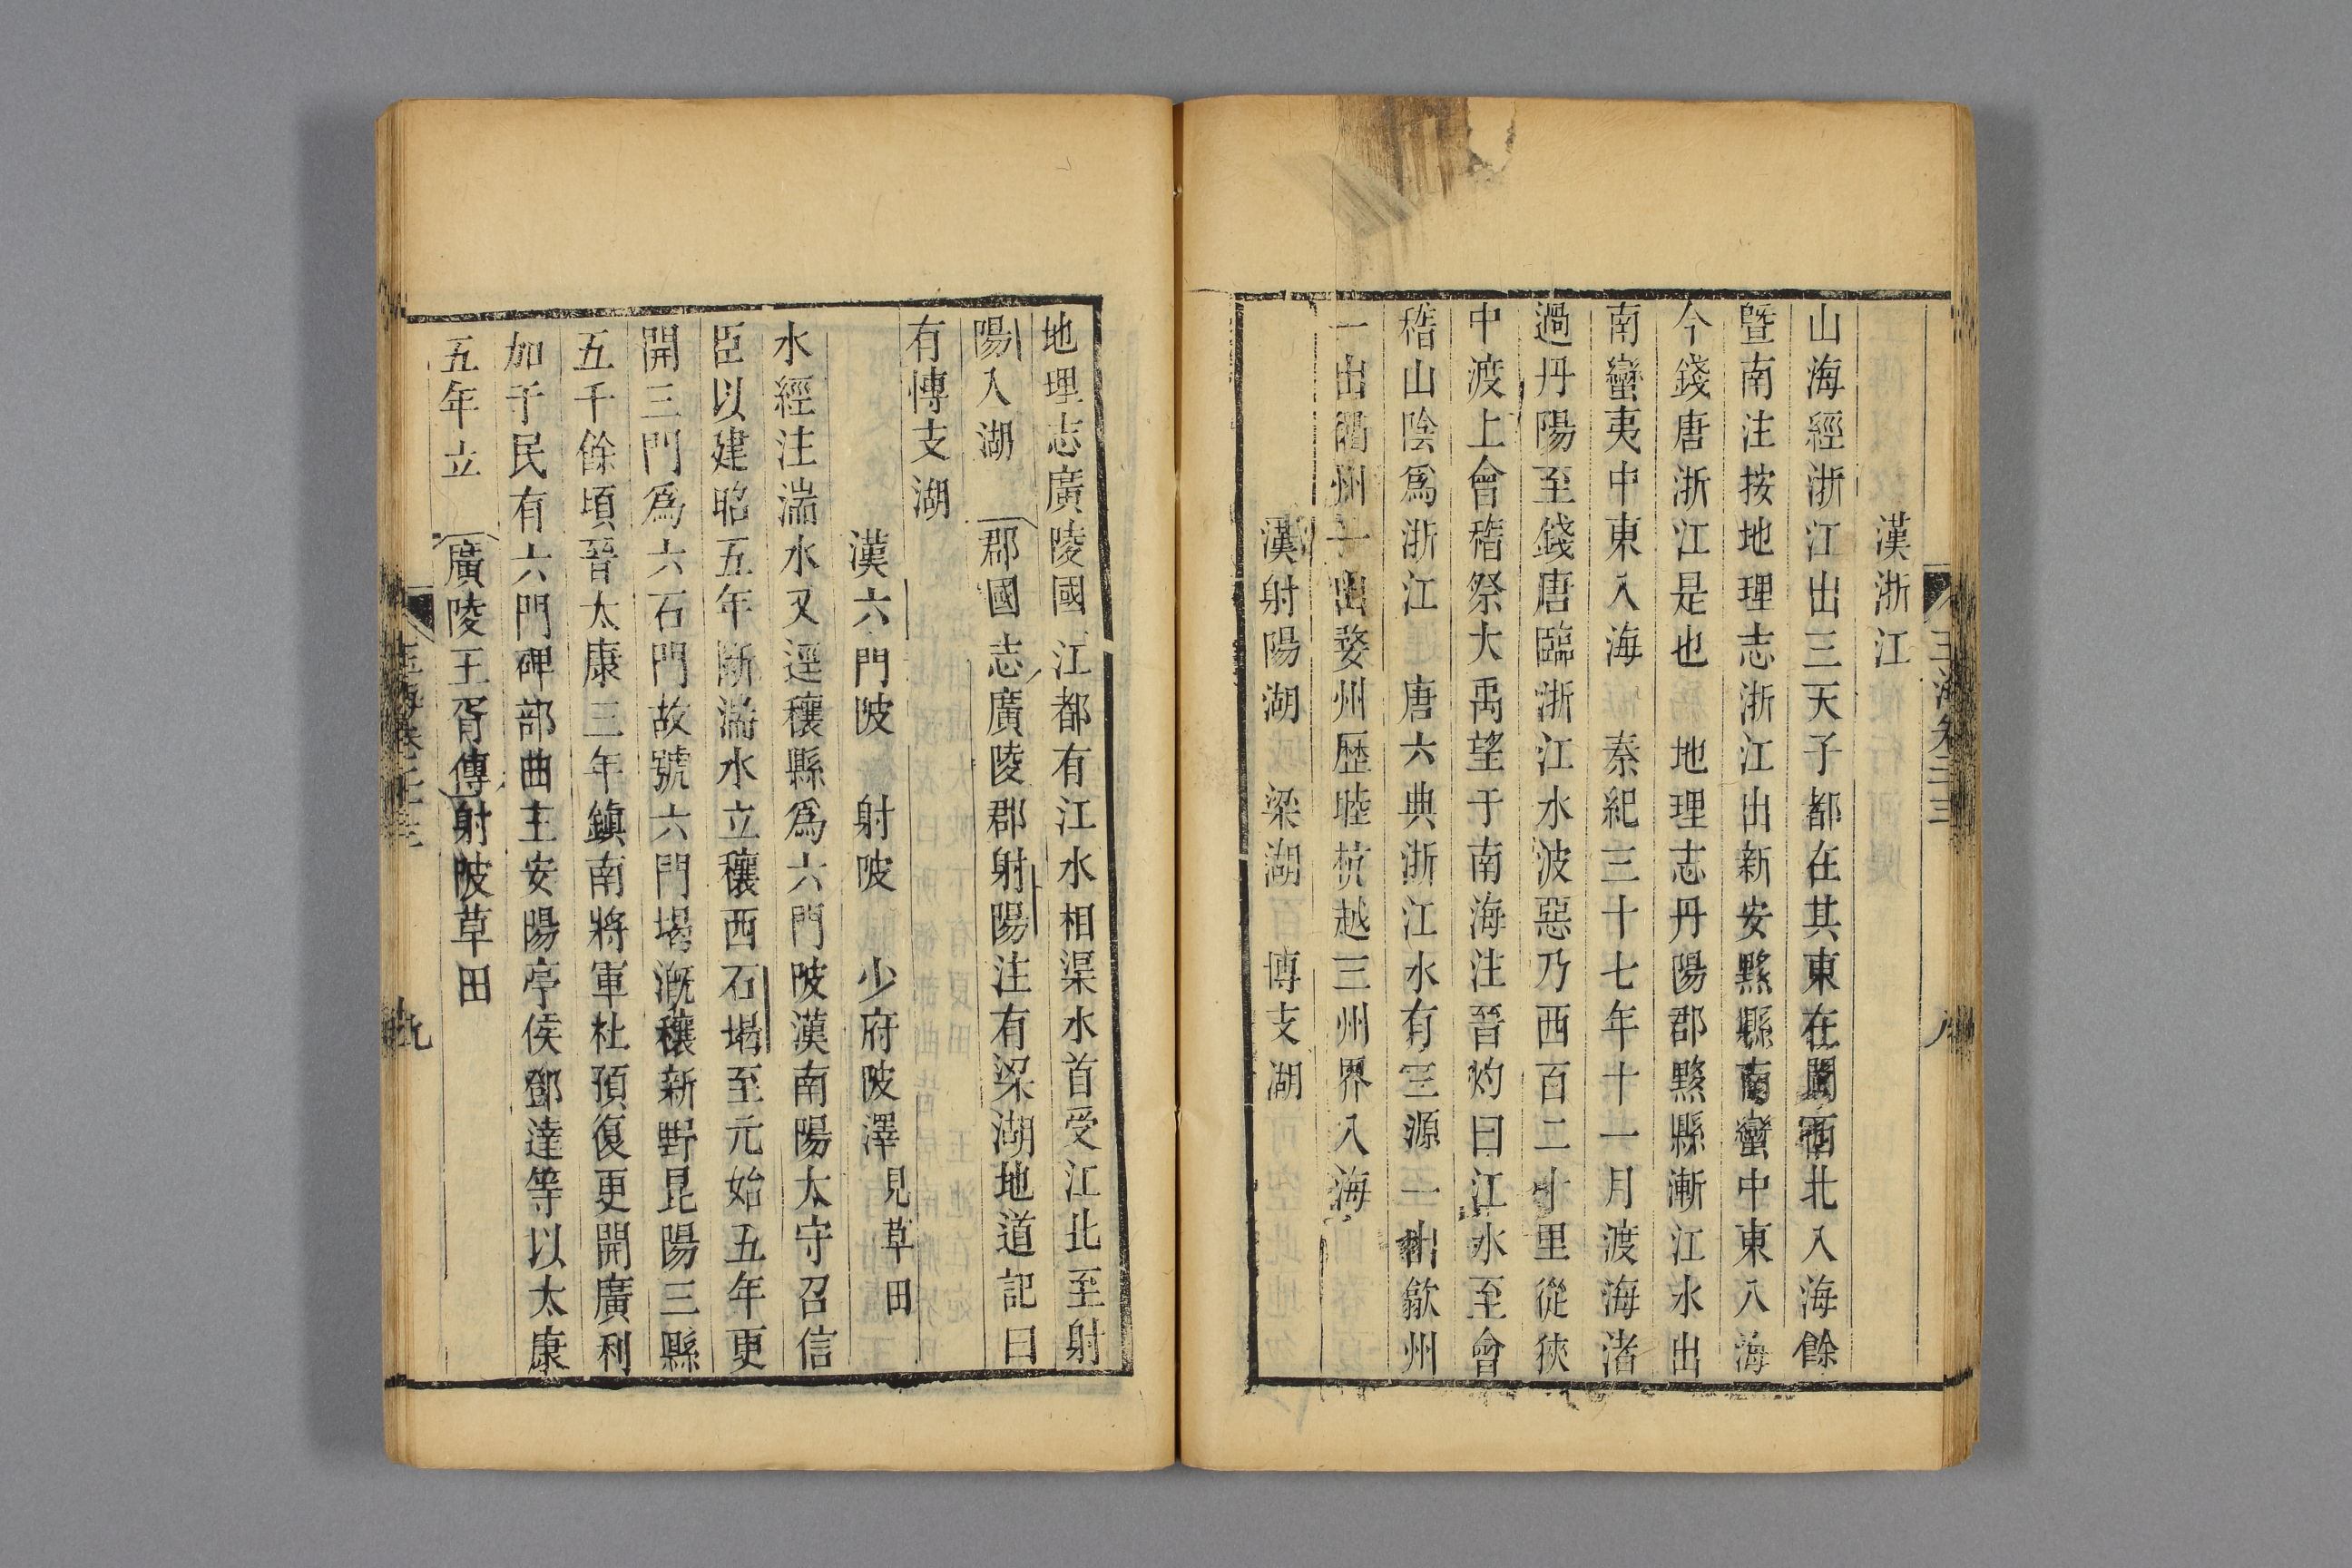 玉海卷二十三 八
漢浙江
山海經浙江出三天子都在其東在閩西北入海餘
暨南注按地理志浙江出新安黟縣南蠻中東入海
今錢唐浙江是也 地理志丹陽郡黟縣漸江水出
南蠻夷中東入海 秦紀三十七年十一月渡海渚
過丹陽至錢唐臨浙江水波惡乃西百二十里從狹
中渡上會稽祭大禹望于南海注晉灼曰江水至會
稽山陰爲浙江 唐六典浙江水有三源一出歙州
一出衢州一出婺州歷睦杭越三州界入海
漢射陽湖 梁湖 博支湖
地理志廣陵國江都有江水相渠水首受江北至射
陽入湖 郡國志廣陵郡射陽注有梁湖地道記曰
有博支湖
漢六門陂 射陂 少府陂澤見草田
水經注湍水又逕穰縣爲六門陂漢南陽太守召信
臣以建昭五年斷湍水立穰西石堨至元始五年更
開三門爲六石門故號六門堨漑穰新野昆陽三縣
五千餘頃晉太康三年鎮南將軍杜預復更開廣利
加于民有六門碑部曲主安陽亭侯鄧達等以太康
五年立 廣陵王胥傳射陂草田
玉海卷二十三 九